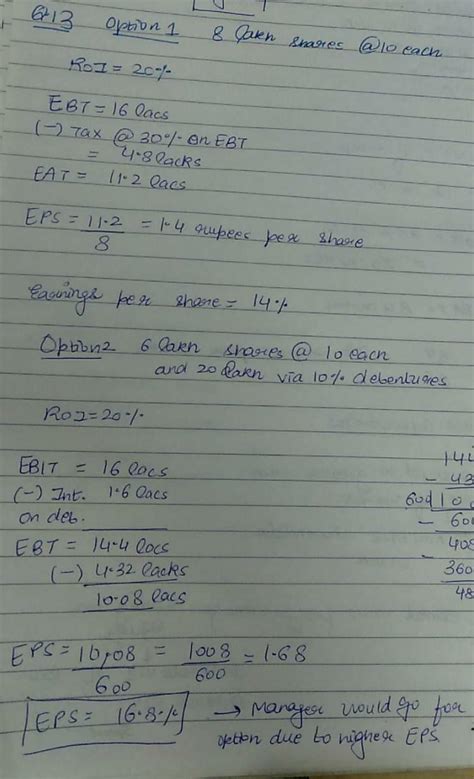 Q.13 Option 1 8 lakh shares @ 10 each
ROI = 20%
EBT = 16 lacs
(-) Tax @ 30% on EBT
= 4.8 lacks
EAT = 11.2 lacs
EPS = 11.2 / 8 = 1.4 rupees per share
Earnings per share = 14%
Option 2 6 lakh shares @ 10 each
and 20 lakh via 10% debentures
ROI = 20%
EBIT = 16 lacs
(-) Int. 1.6 lacs
on deb.
EBT = 14.4 lacs
(-) 4.32 lacks
10.08 lacs
144
- 43
600 100
- 600
408
- 360
48
EPS = 10.08 / 600 = 1008 / 600 = 1.68
EPS = 16.8% → Manager would go for
option due to higher EPS.